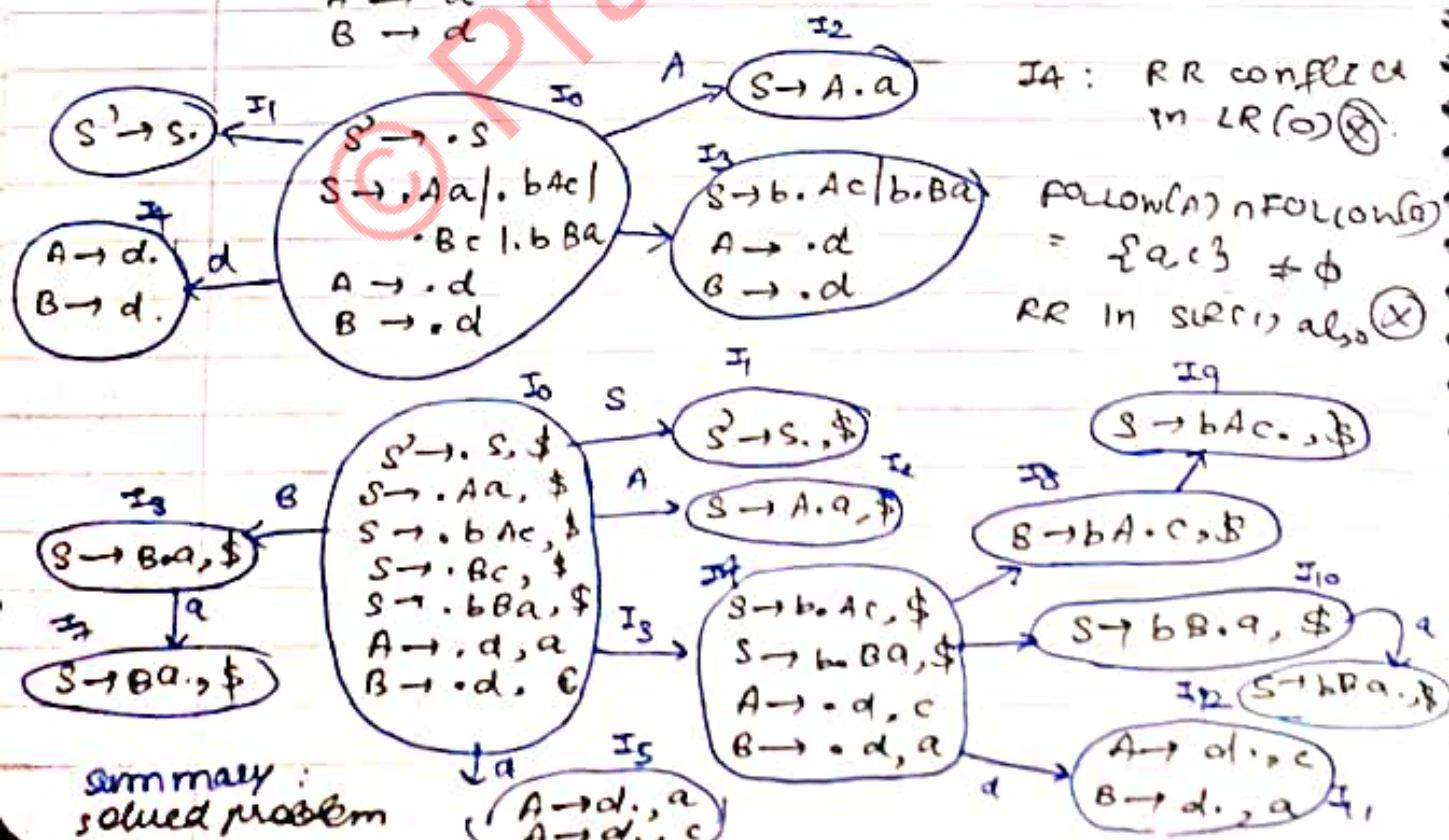 B → d
© Pra
I2
S → A.a
A
I0
I1
S' → S.
S' → .S
S → .Aa|.bAc|
.Bc|.bBa
A → .d
B → .d
I4
A → d.
B → d.
d
I3
S → b.Ac|b.Ba
A → .d
B → .d
I4 : RR conflict
in LR(0) ⊗.
FOLLOW(A) ∩ FOLLOW(B)
= {a,c} ≠ ϕ
RR in SLR(1) also ⊗
I0
S' → .S, $
S → .Aa, $
S → .bAc, $
S → .Bc, $
S → .bBa, $
A → .d, a
B → .d, c
S
I1
S' → S., $
A
S → A.a, $
B
I3
S → B.a, $
a
I7
S → Ba., $
I3
I4
S → b.Ac, $
S → b.Ba, $
A → .d, c
B → .d, a
I8
S → bA.c, $
I9
S → bAc., $
I10
S → bB.a, $
a
I12
S → bBa., $
d
A → d., c
B → d., a
I11
d
I5
A → d., a
A → d., c
summary :
solved problem